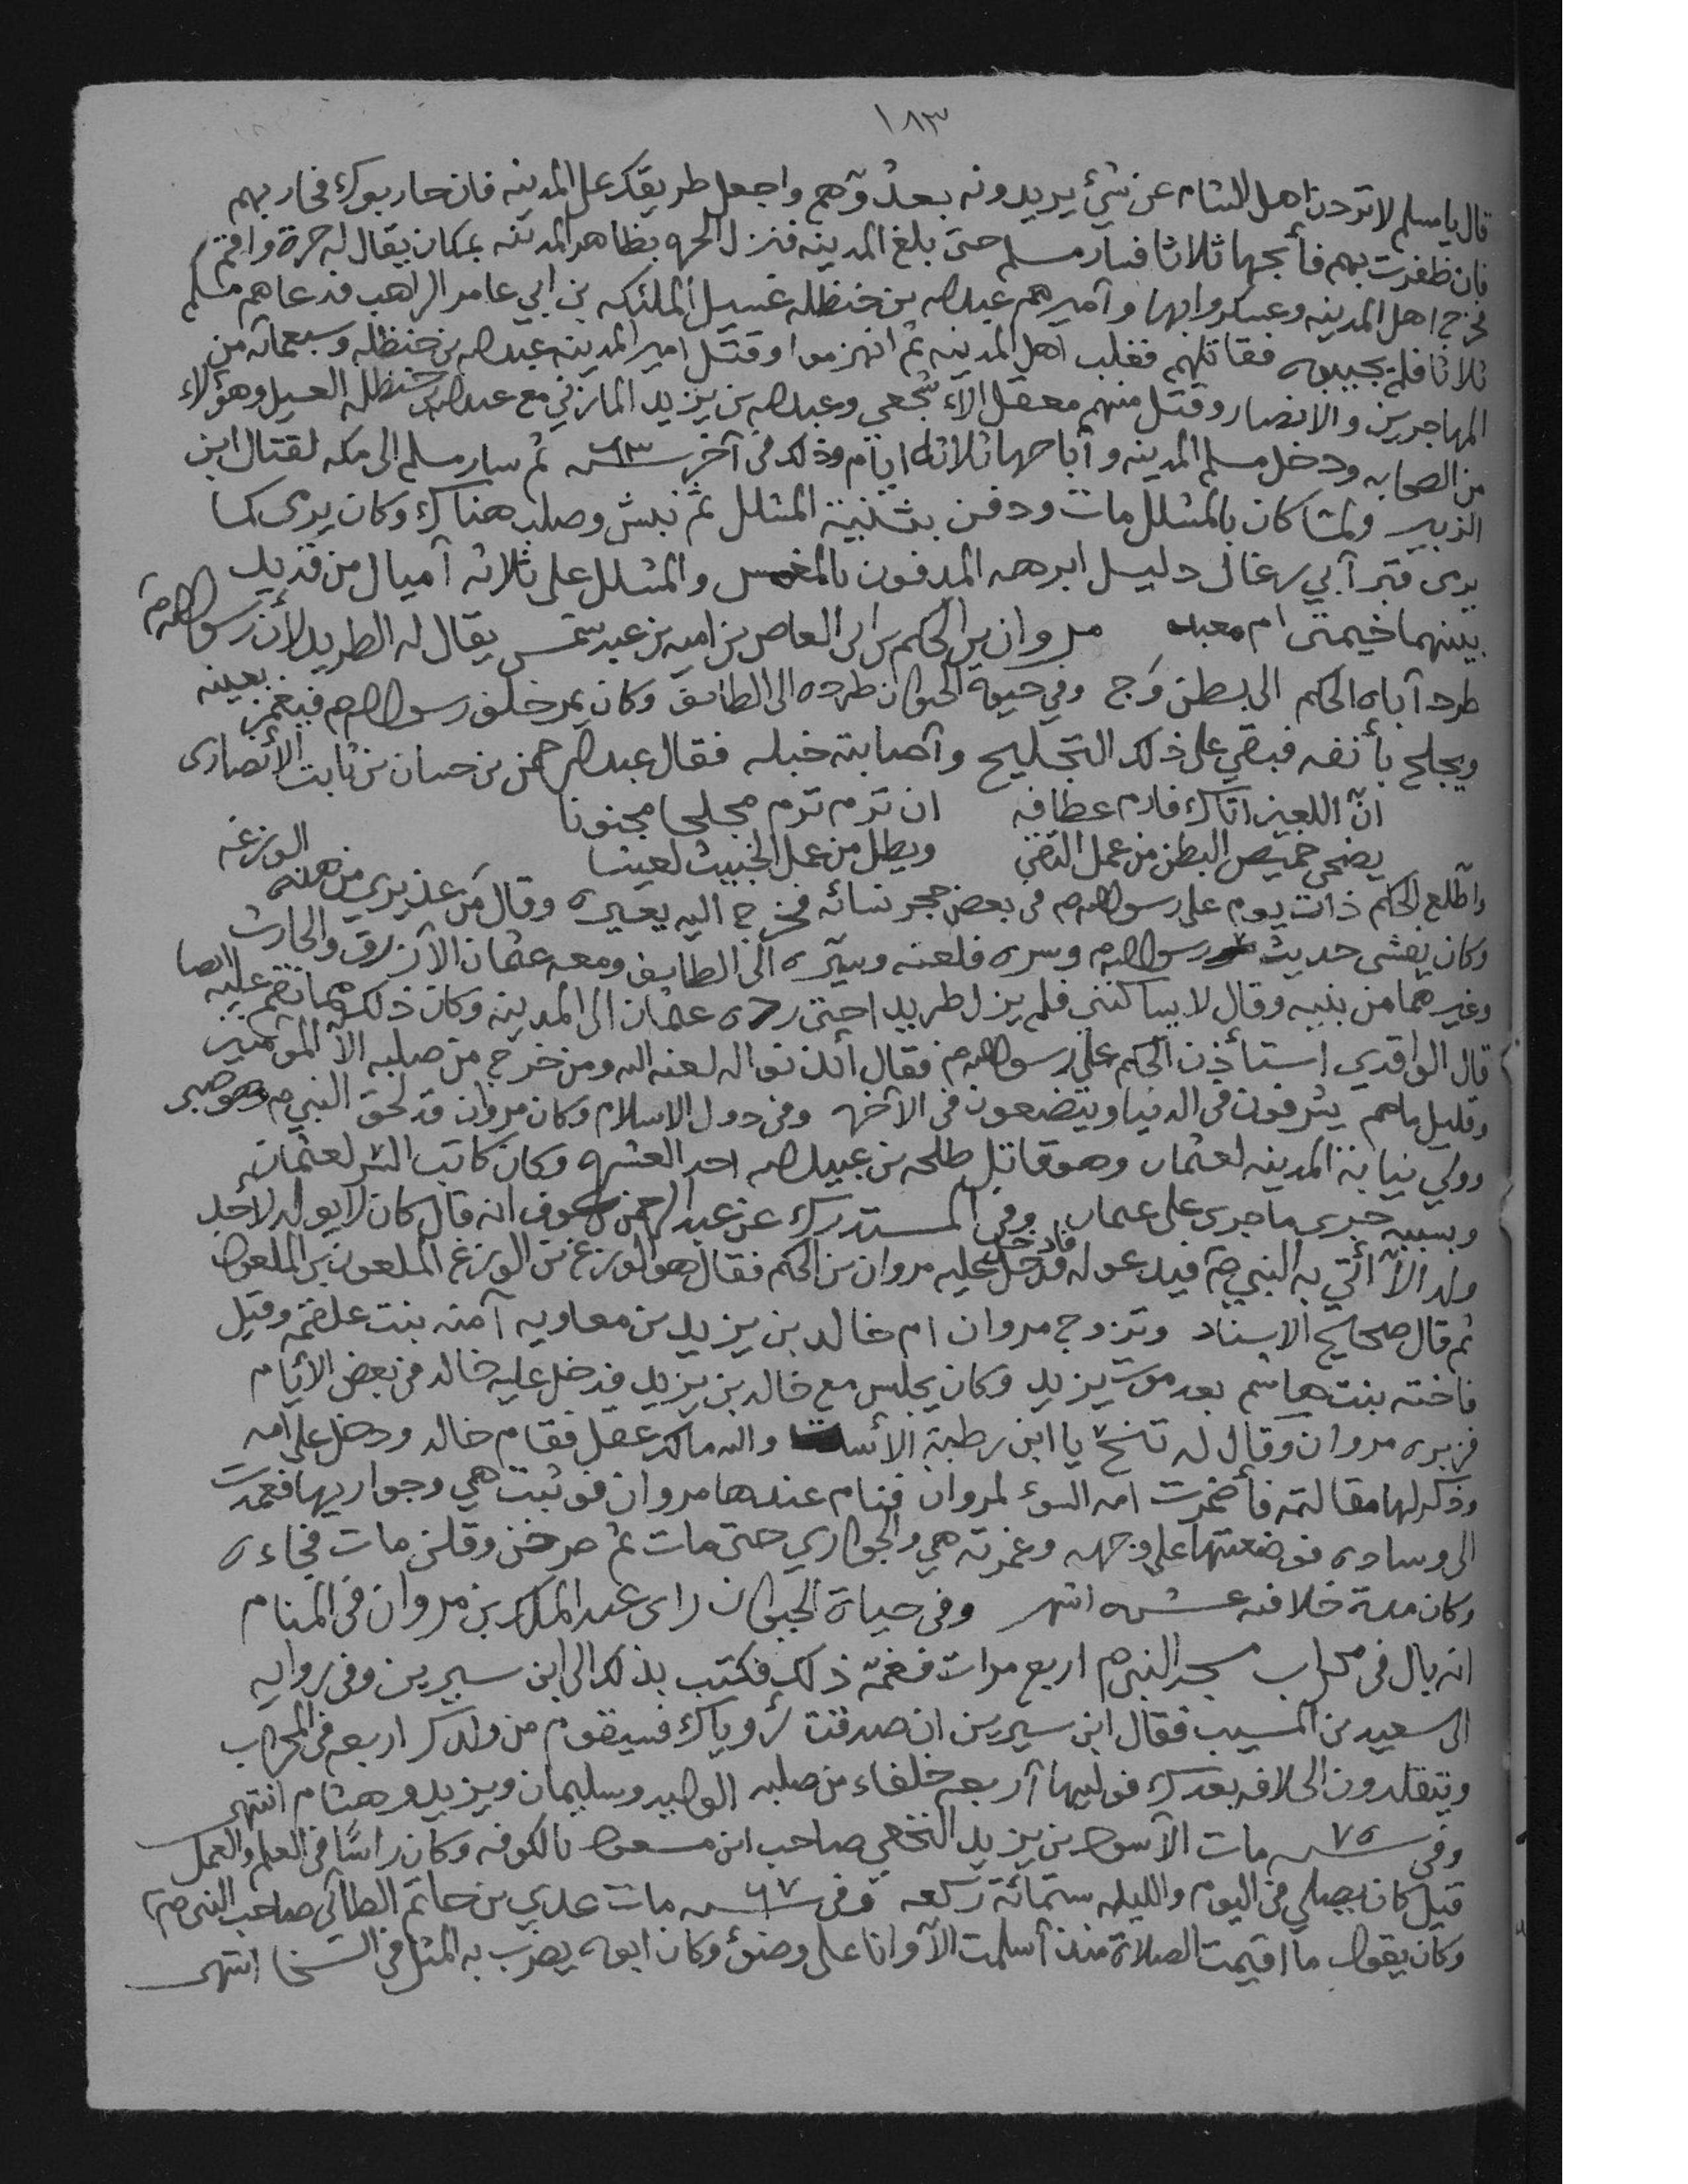 ١٨٣
قال يا مسلم لا تردن اهل الشام عن شئ يريدونه بعدوهم واجعل طريقك على المدينه فان حاربوك فحاربهم
فان ظفرت بهم فأبحها ثلاثا فسار مسلم حتى بلغ المدينه فنزل الحره بظاهر المدينه بمكان يقال له حرة واقم
فخرج اهل المدينه وعسكروا بها وأميرهم عبدالله بن حنظله غسيل الملئكه بن ابي عامر الراهب فدعاهم مسلم
ثلاثا فلم يجيبوه فقاتلهم فغلب اهل المدينه ثم انهزموا وقتل امير المدينه عبدالله بن حنظله وسبعمائه من
المهاجرين والانصار وقتل منهم معقل الأشجعي وعبدالله بن يزيد المازني مع عبدالله بن حنظله الغسيل وهؤلاء
من الصحابه ودخل مسلم المدينه وأباحها ثلاثة ايام وذلك في آخر سنه ٦٣ ثم سار مسلم الى مكه لقتال ابن
الزبير ولمّا كان بالمشلل مات ودفن بثنية المشلل ثم نبش وصلب هناك وكان يرمى كما
يرمى قبر أبي رغال دليل ابرهه المدفون بالمغمس والمشلل على ثلاثه أميال من قديد
بينهما خيمتى ام معبد مروان بن الحكم بن ابى العاص بن اميه بن عبد شمس يقال له الطريد لأن رسول الله صم
طرد أباه الحكم الى بطن وَج وفي حيوة الحيوان طرده الى الطائف وكان يمر خلف رسول الله صم فيغمز بعينه
ويجلح بأنفه فبقي على ذلك التجليح وأصابته خبله فقال عبد الرحمن بن حسان بن ثابت الأنصارى
انّ اللعين اتاك فارم عظافه ان ترم ترم مجلجا مجنونا
يضحى خميص البطن من عمل التقى ويظل من عمل الخبيث لعينا
واطّلع الحكم ذات يوم على رسول الله صم في بعض حجر نسائه فخرج اليه يعيره وقال مَن عذيري من هذه الوزغه
وكان يفشى حديث رسول الله صم وسره فلعنه وسيّره الى الطايف ومعه عثمان الأزرق والحارث
وغيرهما من بنيه وقال لا يساكننى فلم يزل طريدا حتى رده عثمان الى المدينه وكان ذلك مما نقم عليه ايضا
قال الواقدي استأذن الحكم على رسول الله صم فقال أئذنوا له لعنه الله ومن خرج من صلبه الاّ المؤمنين
وقليل ماهم يشرفون في الدنيا ويتضعون في الآخره وفي دول الاسلام وكان مروان قد لحق النبي صم وهو صبي
وولي نيابة المدينه لعثمان وهو قاتل طلحه بن عبيدالله احد العشره وكان كاتب السر لعثمان
وبسببه جرى ماجرى على عثمان وفي المستدرك عن عبد الرحمن بن عوف انه قال كان لا يولد لأحد
ولد الاّ أتي به النبي صم فيدعو له فادخل عليه مروان بن الحكم فقال هو الوزغ بن الوزغ الملعون بن الملعون
ثم قال صحايح الاسناد وتزوج مروان ام خالد بن يزيد بن معاويه آمنه بنت علقمه وقيل
فاخته بنت هاشم بعد موت يزيد وكان يجلس مع خالد بن يزيد فدخل عليه خالد في بعض الأيام
فزبره مروان وقال له تنح يا ابن رطبة الأست والله مالك عقل فقام خالد ودخل على امه
وذكر لها مقالته فأضمرت امه السوء لمروان فنام عندها مروان فوثبت هي وجواريها فعمدت
الى وساده فوضعتها على وجهه وغمرته هي والجواري حتى مات ثم صرخن وقلن مات فجاءه
وكان مدة خلافته عشره اشهر وفي حياة الحيوان راى عبد الملك بن مروان في المنام
انه بال في محراب مسجد النبي صم اربع مرات فغمّه ذلك فكتب بذلك الى ابن سيرين وفي روايه
الى سعيد بن المسيب فقال ابن سيرين ان صدقت رؤياك فسيقوم من ولدك اربعه في المحراب
ويتقلدون الخلافه بعدك فوليها أربعه خلفاء من صلبه الوليد وسليمان ويزيد وهشام انتهى
وفي سنه ٧٥ مات الأسود بن يزيد النخعي صاحب ابن مسعود بالكوفه وكان راسًا في العلم والعمل
قيل كان يصلي في اليوم والليله ستمائة ركعه وفي سنه ٦٧ مات عدي بن حاتم الطائي صاحب النبي صم
وكان يقول ما اقيمت الصلاة منذ أسلمت الاّ وانا على وضؤ وكان ابوه يضرب به المثل في السخا انتهى